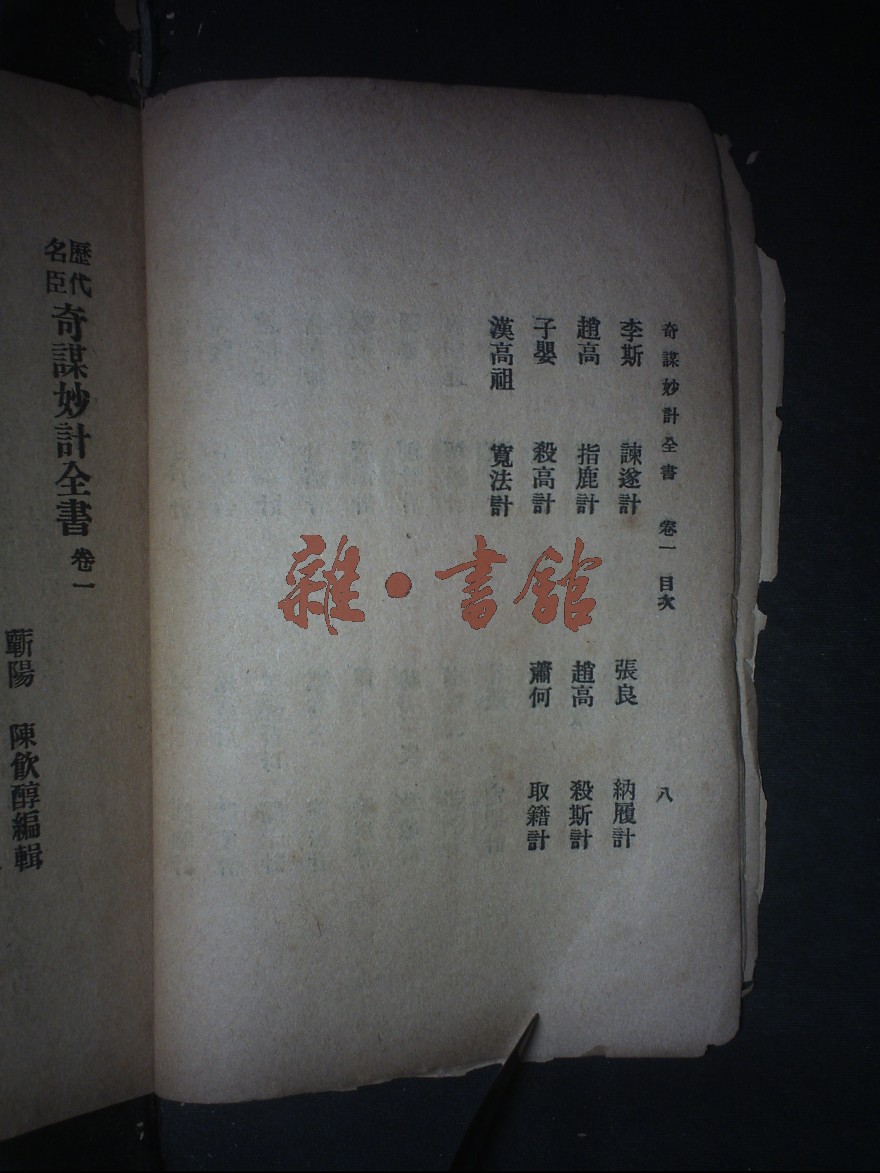 奇謀妙計全書 卷一 目次 八
李斯 諫逐計 張良 納履計
趙高 指鹿計 趙高 殺斯計
子嬰 殺高計 蕭何 取籍計
漢高祖 寬法計
歷代名臣 奇謀妙計全書 卷一
蘄陽 陳飲醇編輯
雜·書館